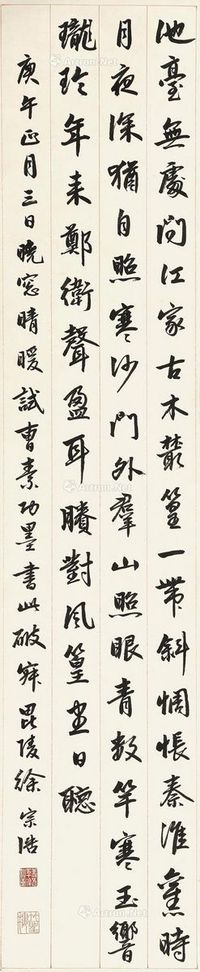 池臺無處問江家古木叢篁一帶斜惆悵秦淮舊時
月夜深猶自照寒沙門外羣山照眼青數竿寒玉響
瓏玲年來鄭衛聲盈耳賸對風篁坐日聽
庚午正月三日曉窓晴暖試曹素功墨書此破寂毘陵徐宗浩